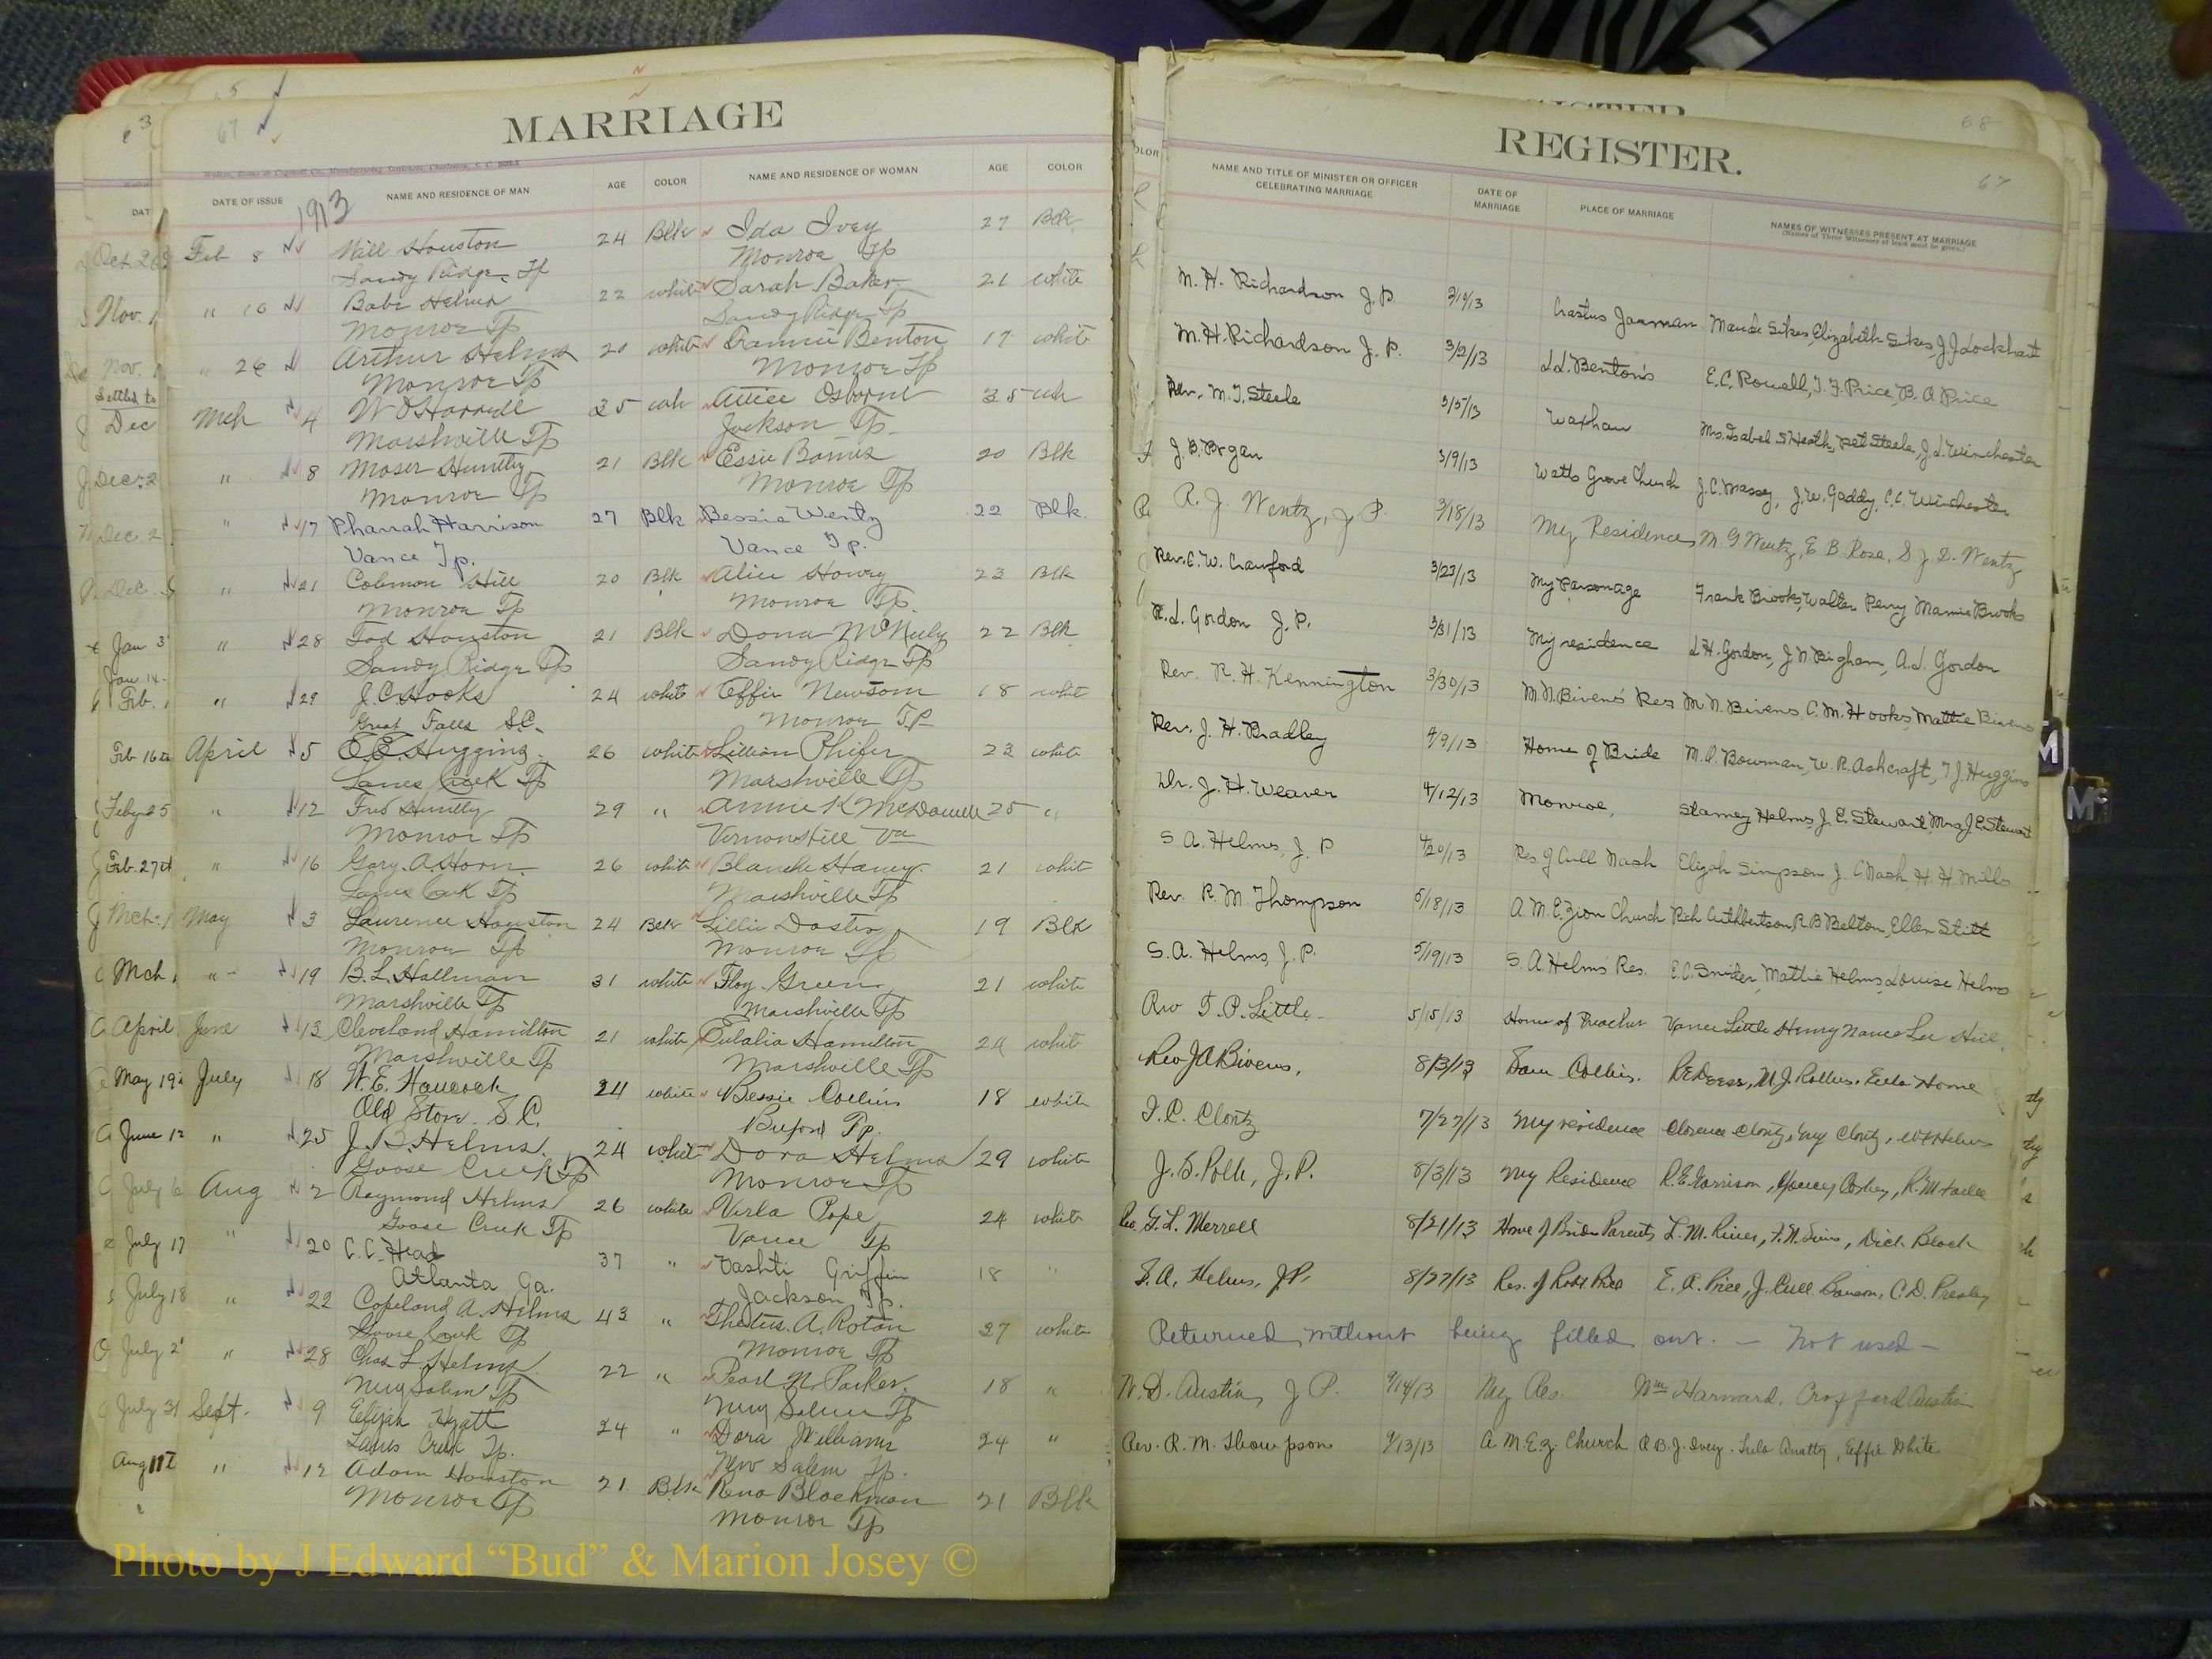 MARRIAGE
67
DATE OF ISSUE NAME AND RESIDENCE OF MAN AGE COLOR NAME AND RESIDENCE OF WOMAN AGE COLOR
1913
Feb 8 Will Houston 24 Blk Ida Ivey 27 Blk
Sandy Ridge Tp Monroe Tp
" 16 Babe Helms 22 white Sarah Baker 21 white
Monroe Tp Sandy Ridge Tp
" 26 Arthur Helms 20 white Fannie Benton 17 white
Monroe Tp Monroe Tp
Mch 4 35 wh Osborne 35 wh
Marshville Tp Jackson Tp.
" 8 Moser Huntley 21 Blk Essie 20 Blk
Monroe Tp Monroe Tp
" 17 Pharrah Harrison 27 Blk Bessie Wentz 22 Blk.
Vance Tp. Vance Tp.
" 21 Colemon Hill 20 Blk Alice Howey 23 Blk
Monroe Tp Monroe Tp.
" 28 Tod Houston 21 Blk Dona McNeely 22 Blk
Sandy Ridge Tp Sandy Ridge Tp
" 29 J.C. Hooks 24 white Effie Newsom 18 white
Great Falls S.C. Monroe T.P
April 5 Huggins 26 white Lillian Phifer 23 white
Lanes Creek Tp Marshville Tp
" 12 Fred Huntley 29 " Annie K McDowell 25 "
Monroe Tp Vernonhill Va
" 16 Gary. A. Horn. 26 white Blanche Haney. 21 white
Lanes Creek Tp Marshville Tp
May 3 Laurence Houston 24 Blk Lillie Doster 19 Blk
Monroe Tp Monroe Tp
" 19 B.L. Hallman 31 white Floy Green 21 white
Marshville Tp Marshville Tp
June 13 Cleveland Hamilton 21 white Eulalia Hamilton 24 white
Marshville Tp Marshville Tp
July 18 W.E. Haucock 24 white Bessie Collins 18 white
Old Store S.C. Buford Tp.
" 25 J.B. Helms. 24 white Dora Helms 29 white
Goose Creek Tp Monroe Tp
Aug 2 Raymond Helms 26 white Verla Pope 24 white
Goose Creek Tp Vance Tp
" 20 C.C. Head 37 " Vashti Griffin 18 "
Atlanta Ga. Jackson Tp.
" 22 Copeland A. Helms 43 " A. Rotan 27 white
Goose Creek Tp Monroe Tp
" 28 Chas L. Helms 22 " Pearl N. Parker. 18 "
New Salem Tp New Salem Tp
Sept. 9 Elijah Hyatt 24 " Dora Williams 24 "
Lanes Creek Tp. New Salem Tp.
" 12 Adam Houston 21 Blk Rena Blackmon 21 Blk
Monroe Tp Monroe Tp
REGISTER.
68
67
NAME AND TITLE OF MINISTER OR OFFICER CELEBRATING MARRIAGE DATE OF MARRIAGE PLACE OF MARRIAGE NAMES OF WITNESSES PRESENT AT MARRIAGE
(Names of Three Witnesses at least must be given.)
M. H. Richardson J.P. Jarman Maude Sikes, Elizabeth Sikes, J.J. Lockhart
M.H. Richardson J. P. 3/2/13 L.L. Benton's E.C. Rowell, T. F. Price, B. A Price
Rev. M.T. Steele 3/5/13 Waxhaw Mrs. Isabel S Heath, Pet Steele, J.L. Winchester
3/9/13 Watts Grove Church J.C. Massey, J.W. Gaddy, C.C. Winchester
A. J. Wentz, J P. 3/18/13 My Residence M G Wentz, E B Rose, S J. D. Wentz
Rev. C. W. Crawford 3/23/13 My Parsonage Frank Brooks, Walter Perry Mamie Brooks
R.L. Gordon J. P. 3/31/13 My residence L.H. Gordon, J N. Bigham, A.J. Gordon
Rev. R. H. Kennington 3/30/13 M.N. Bivens' Res M. N. Bivens, C. M. Hooks, Mattie Bivens
Rev. J. H. Bradley 4/9/13 Home of Bride M.O. Bowman, W. R. Ashcraft, T.J. Huggins
Dr. J. H. Weaver 4/12/13 Monroe, Stamey Helms, J. E. Stewart, Mrs J.E. Stewart
S. A. Helms, J. P 4/20/13 Res of Cull Nash Elijah Simpson J. C Nash H. H. Mills
Rev. R. M. Thompson 5/18/13 A. M. E. Zion Church Rich Cuthbertson, R B Belton, Ellen Stitt
S. A. Helms, J. P. 5/19/13 S. A. Helms' Res. E.C. Snider, Mattie Helms, Louise Helms
Rev T. P. Little 5/15/13 Home of Preacher Vance Little Henry Nance Lee Hill.
Rev J A Bivens, 8/3/13 Sam Collins. Home
I. C. Clontz 7/27/13 My residence Clarence Clontz, Guy Clontz,
J. D. Polk, J. P. 8/3/13 My Residence R.E. Garrison,
Rev G. L. Merrell 8/21/13 Home of Brides Parents Dick Black
S. A. Helms, J.P. 8/27/13 Res. of Robt Price E. A. Price, C.D. Presley
Returned without being filled out. — Not used —
W. D. Austin, J P. 9/14/13 My Res. Wm Harward, Crofford Austin
Rev. R. M. Thompson 9/13/13 A M. E. Z. Church R B. J. Ivey. Effie White
Photo by J Edward “Bud” & Marion Josey ©